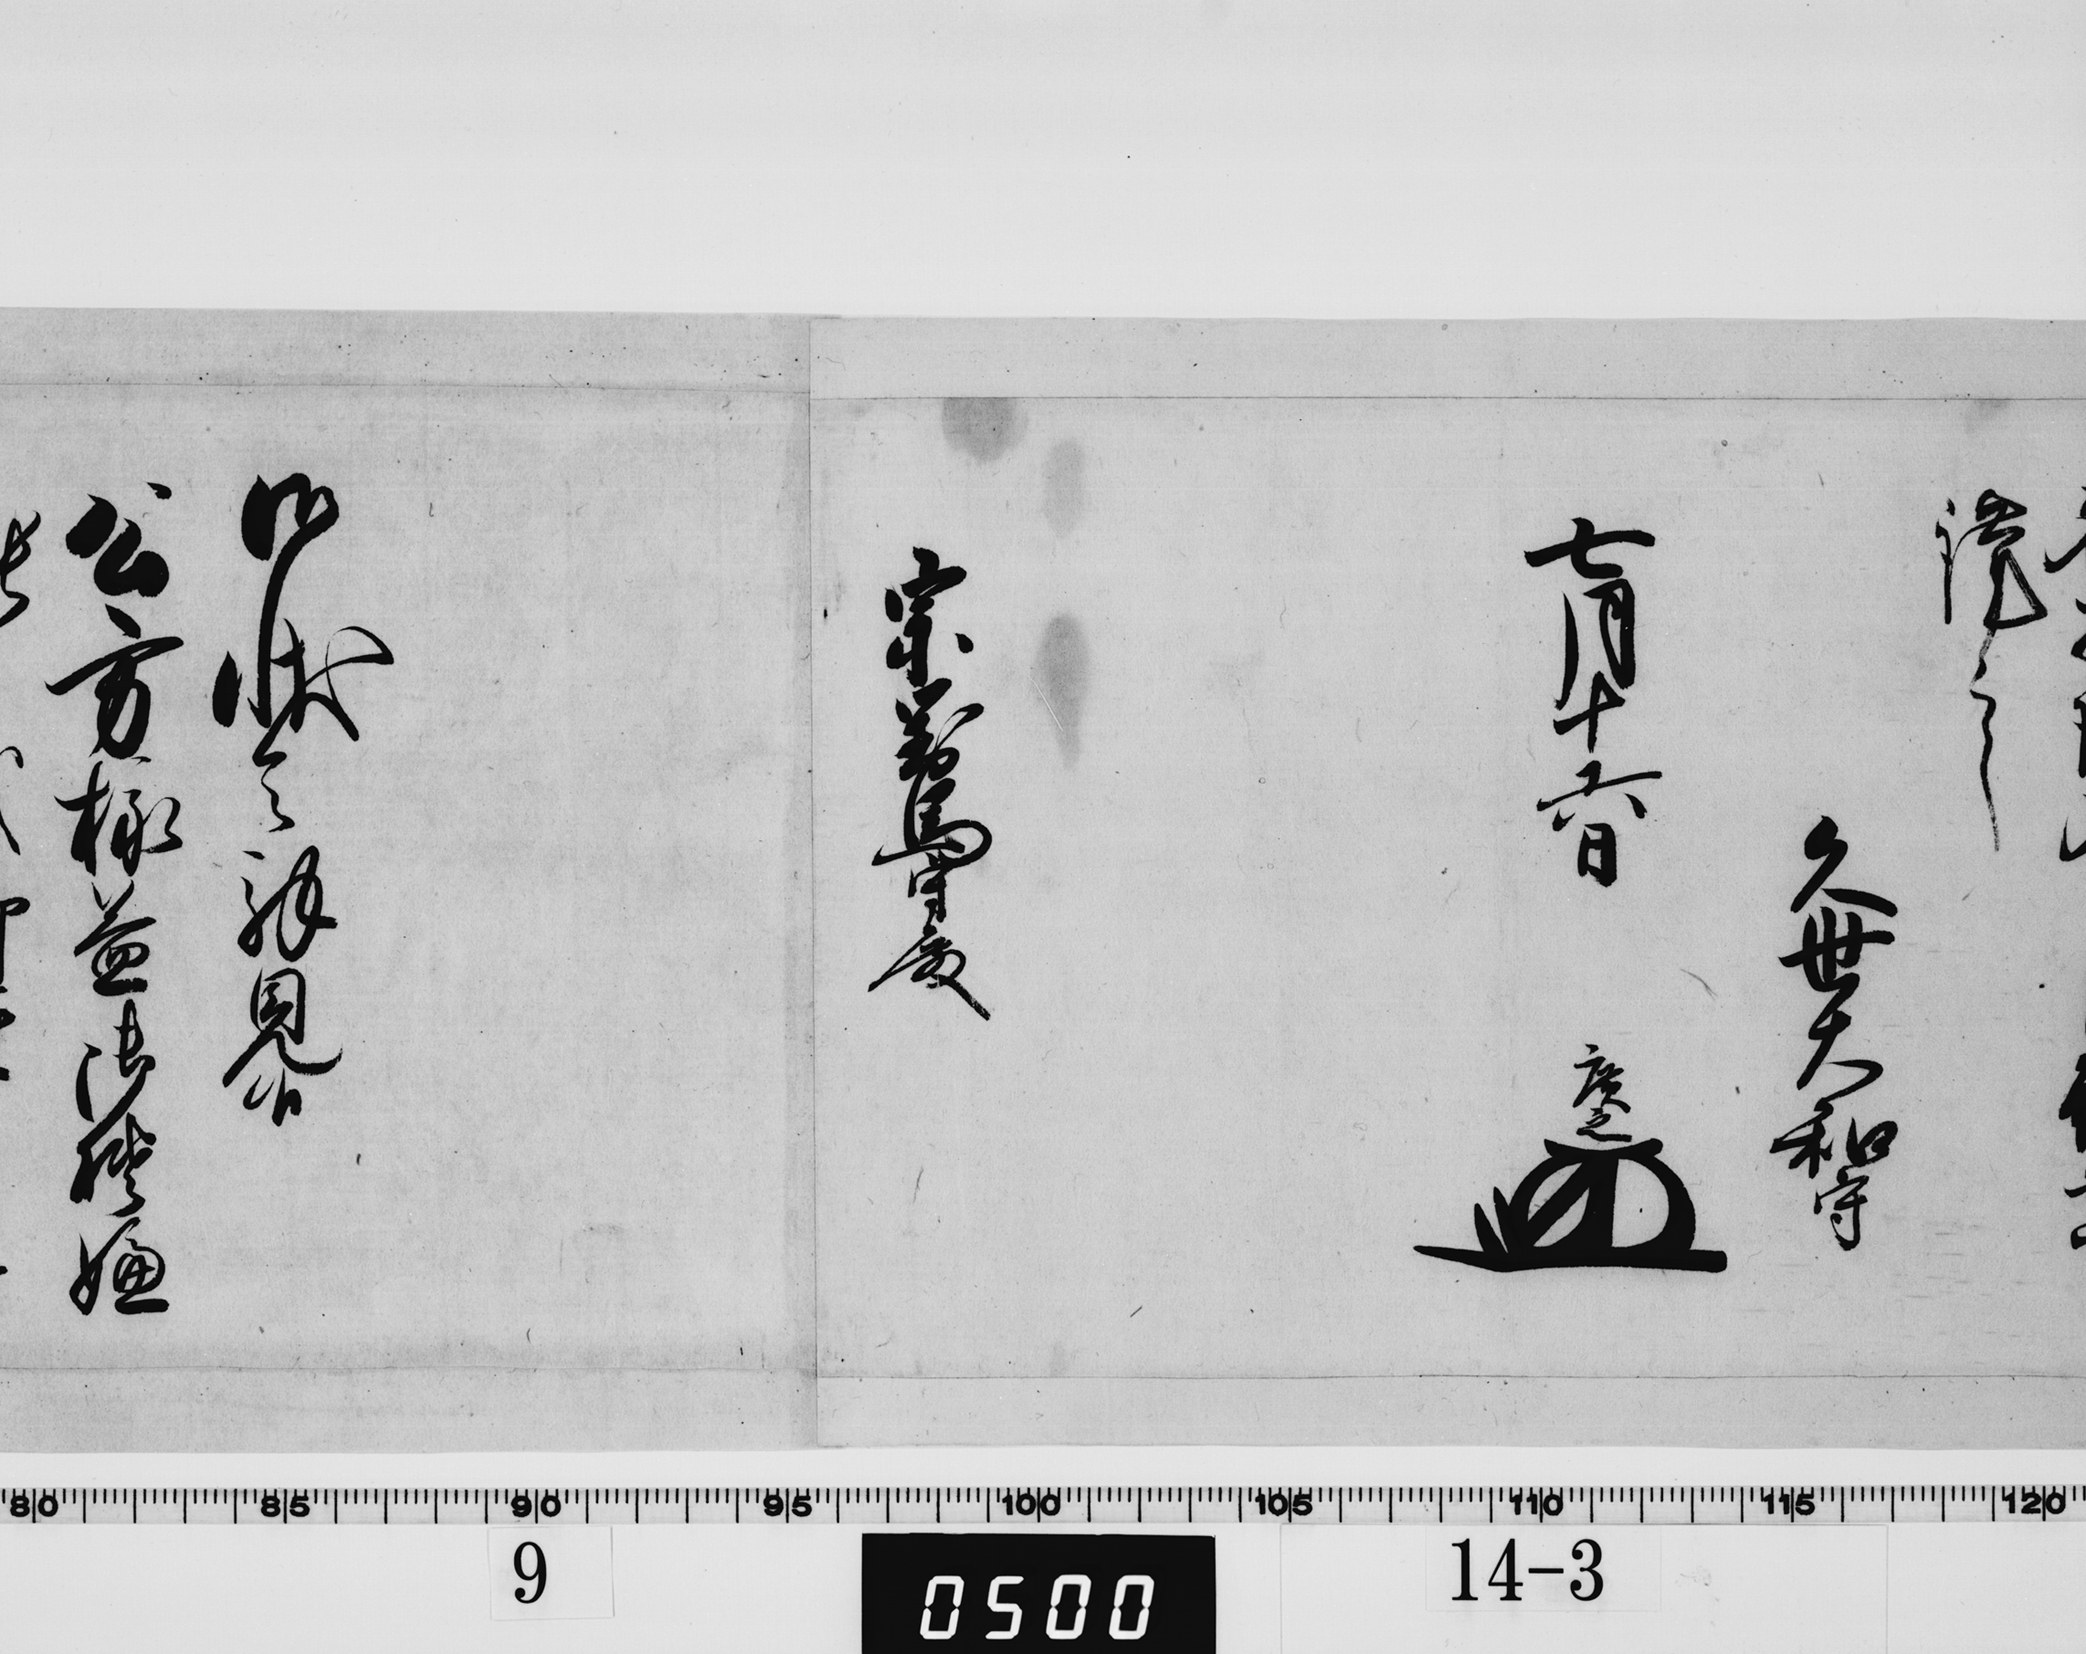 謹言
久世大和守
七月十六日
廣之
宗對馬守殿
御状令拝見候
公方様益御機嫌
80 85 90 95 100 105 110 115 120
9
0500
14-3